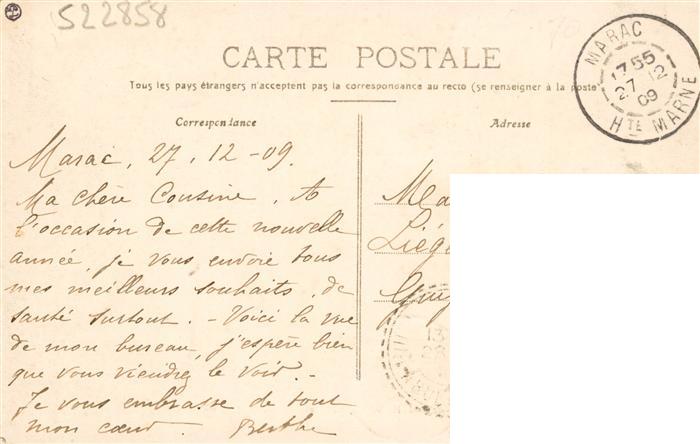 522858
CARTE POSTALE
Tous les pays étrangers n'acceptent pas la correspondance au recto (se renseigner à la poste)
MARAC
17 55
27 12
09
HTE MARNE
Correspondance
Marac, 27, 12 - 09.
Ma chère Cousine, A
l'occasion de cette nouvelle
année, je vous envoie tous
mes meilleurs souhaits, de
santé surtout. - Voici la vue
de mon bureau, j'espère bien
que vous viendrez le voir. -
Je vous embrasse de tout
mon cœur. Berthe
Adresse
Ma
Liég